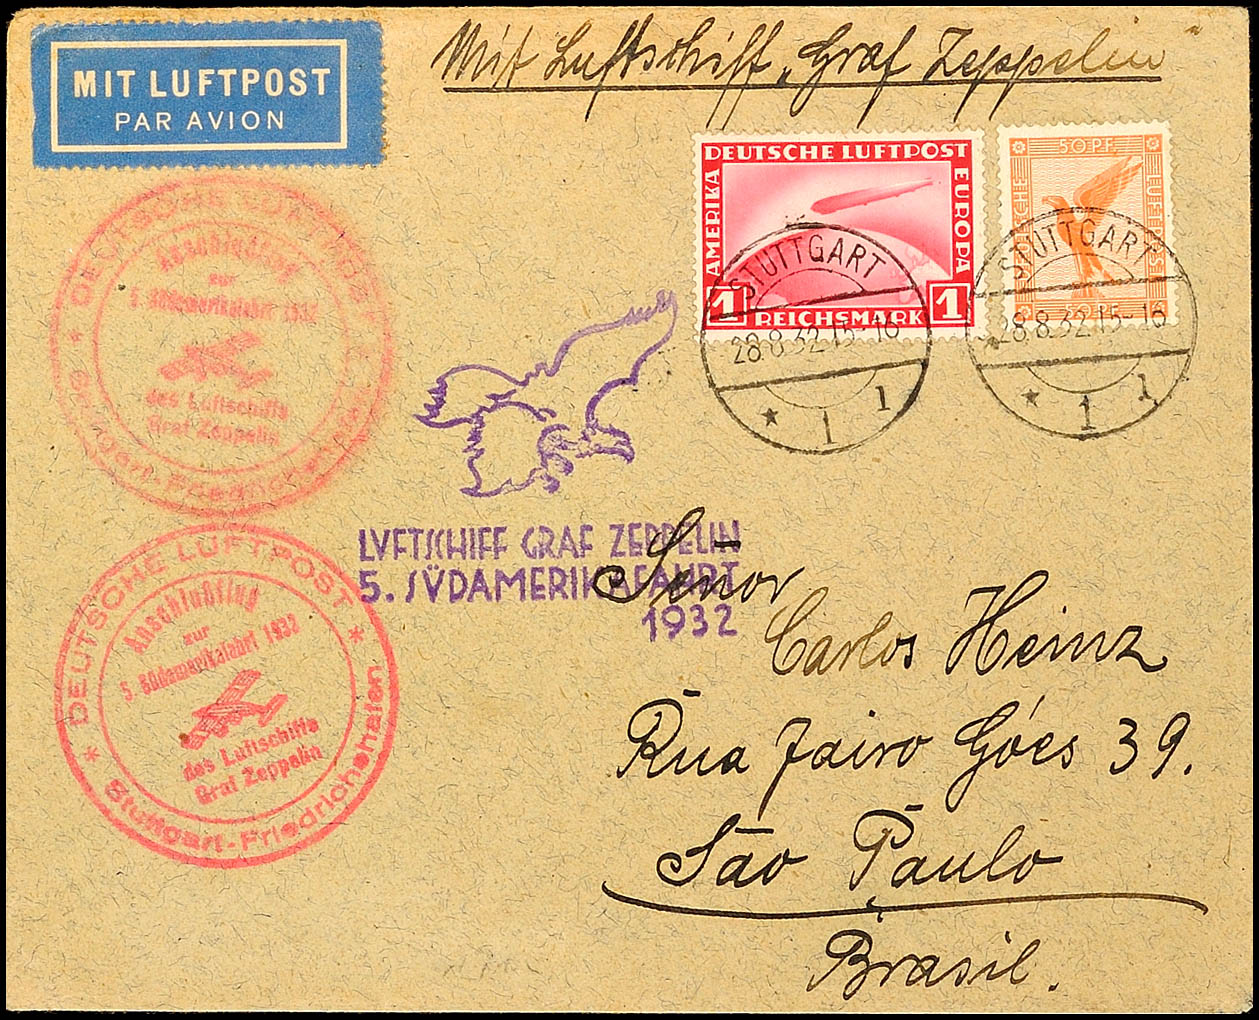 MIT LUFTPOST
PAR AVION
Mit Luftschiff „Graf Zeppelin“
DEUTSCHE LUFTPOST
AMERIKA
EUROPA
1 REICHSMARK 1
50 PF.
DEUTSCHE
LUFTPOST
50 PF.
STUTTGART
28.8.32.15-16
* 1 1
STUTTGART
28.8.32.15-16
* 1 1
DEUTSCHE LUFTPOST
Anschlußflug
zur
5. Südamerikafahrt 1932
des Luftschiffs
Graf Zeppelin
Stuttgart-Friedrichshafen
LUFTSCHIFF GRAF ZEPPELIN
5. SÜDAMERIKAFAHRT
1932
DEUTSCHE LUFTPOST
Anschlußflug
zur
5. Südamerikafahrt 1932
des Luftschiffs
Graf Zeppelin
Stuttgart-Friedrichshafen
Señor
Carlos Heinz
Rua Jairo Góes 39.
São Paulo
Brasil.